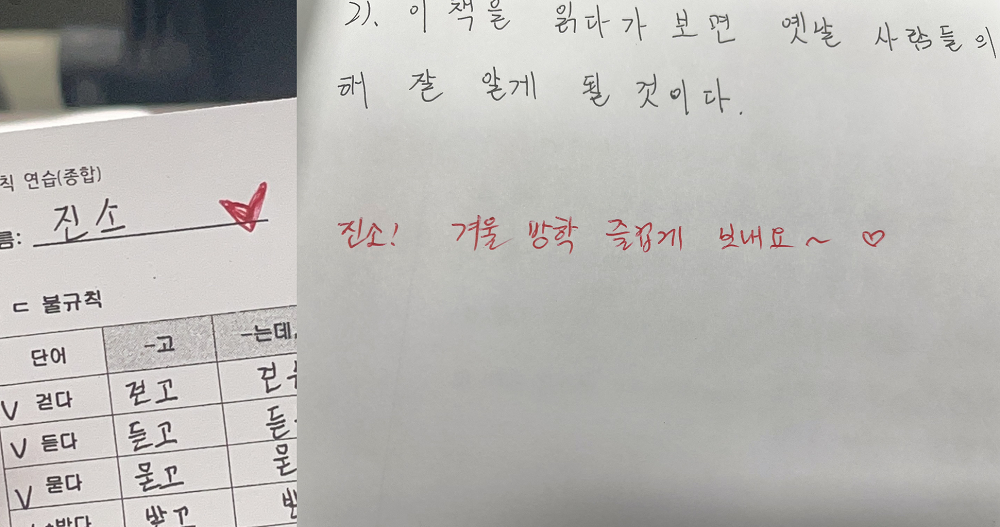 칙 연습(종합)
름: 진소
ㄷ 불규칙
단어 -고 -는데,
걷다 걷고
듣다 듣고
묻다 묻고
받고
2). 이 책을 읽다가 보면 옛날 사람들의
해 잘 알게 될 것이다.
진소! 겨울 방학 즐겁게 보내요~ ♡